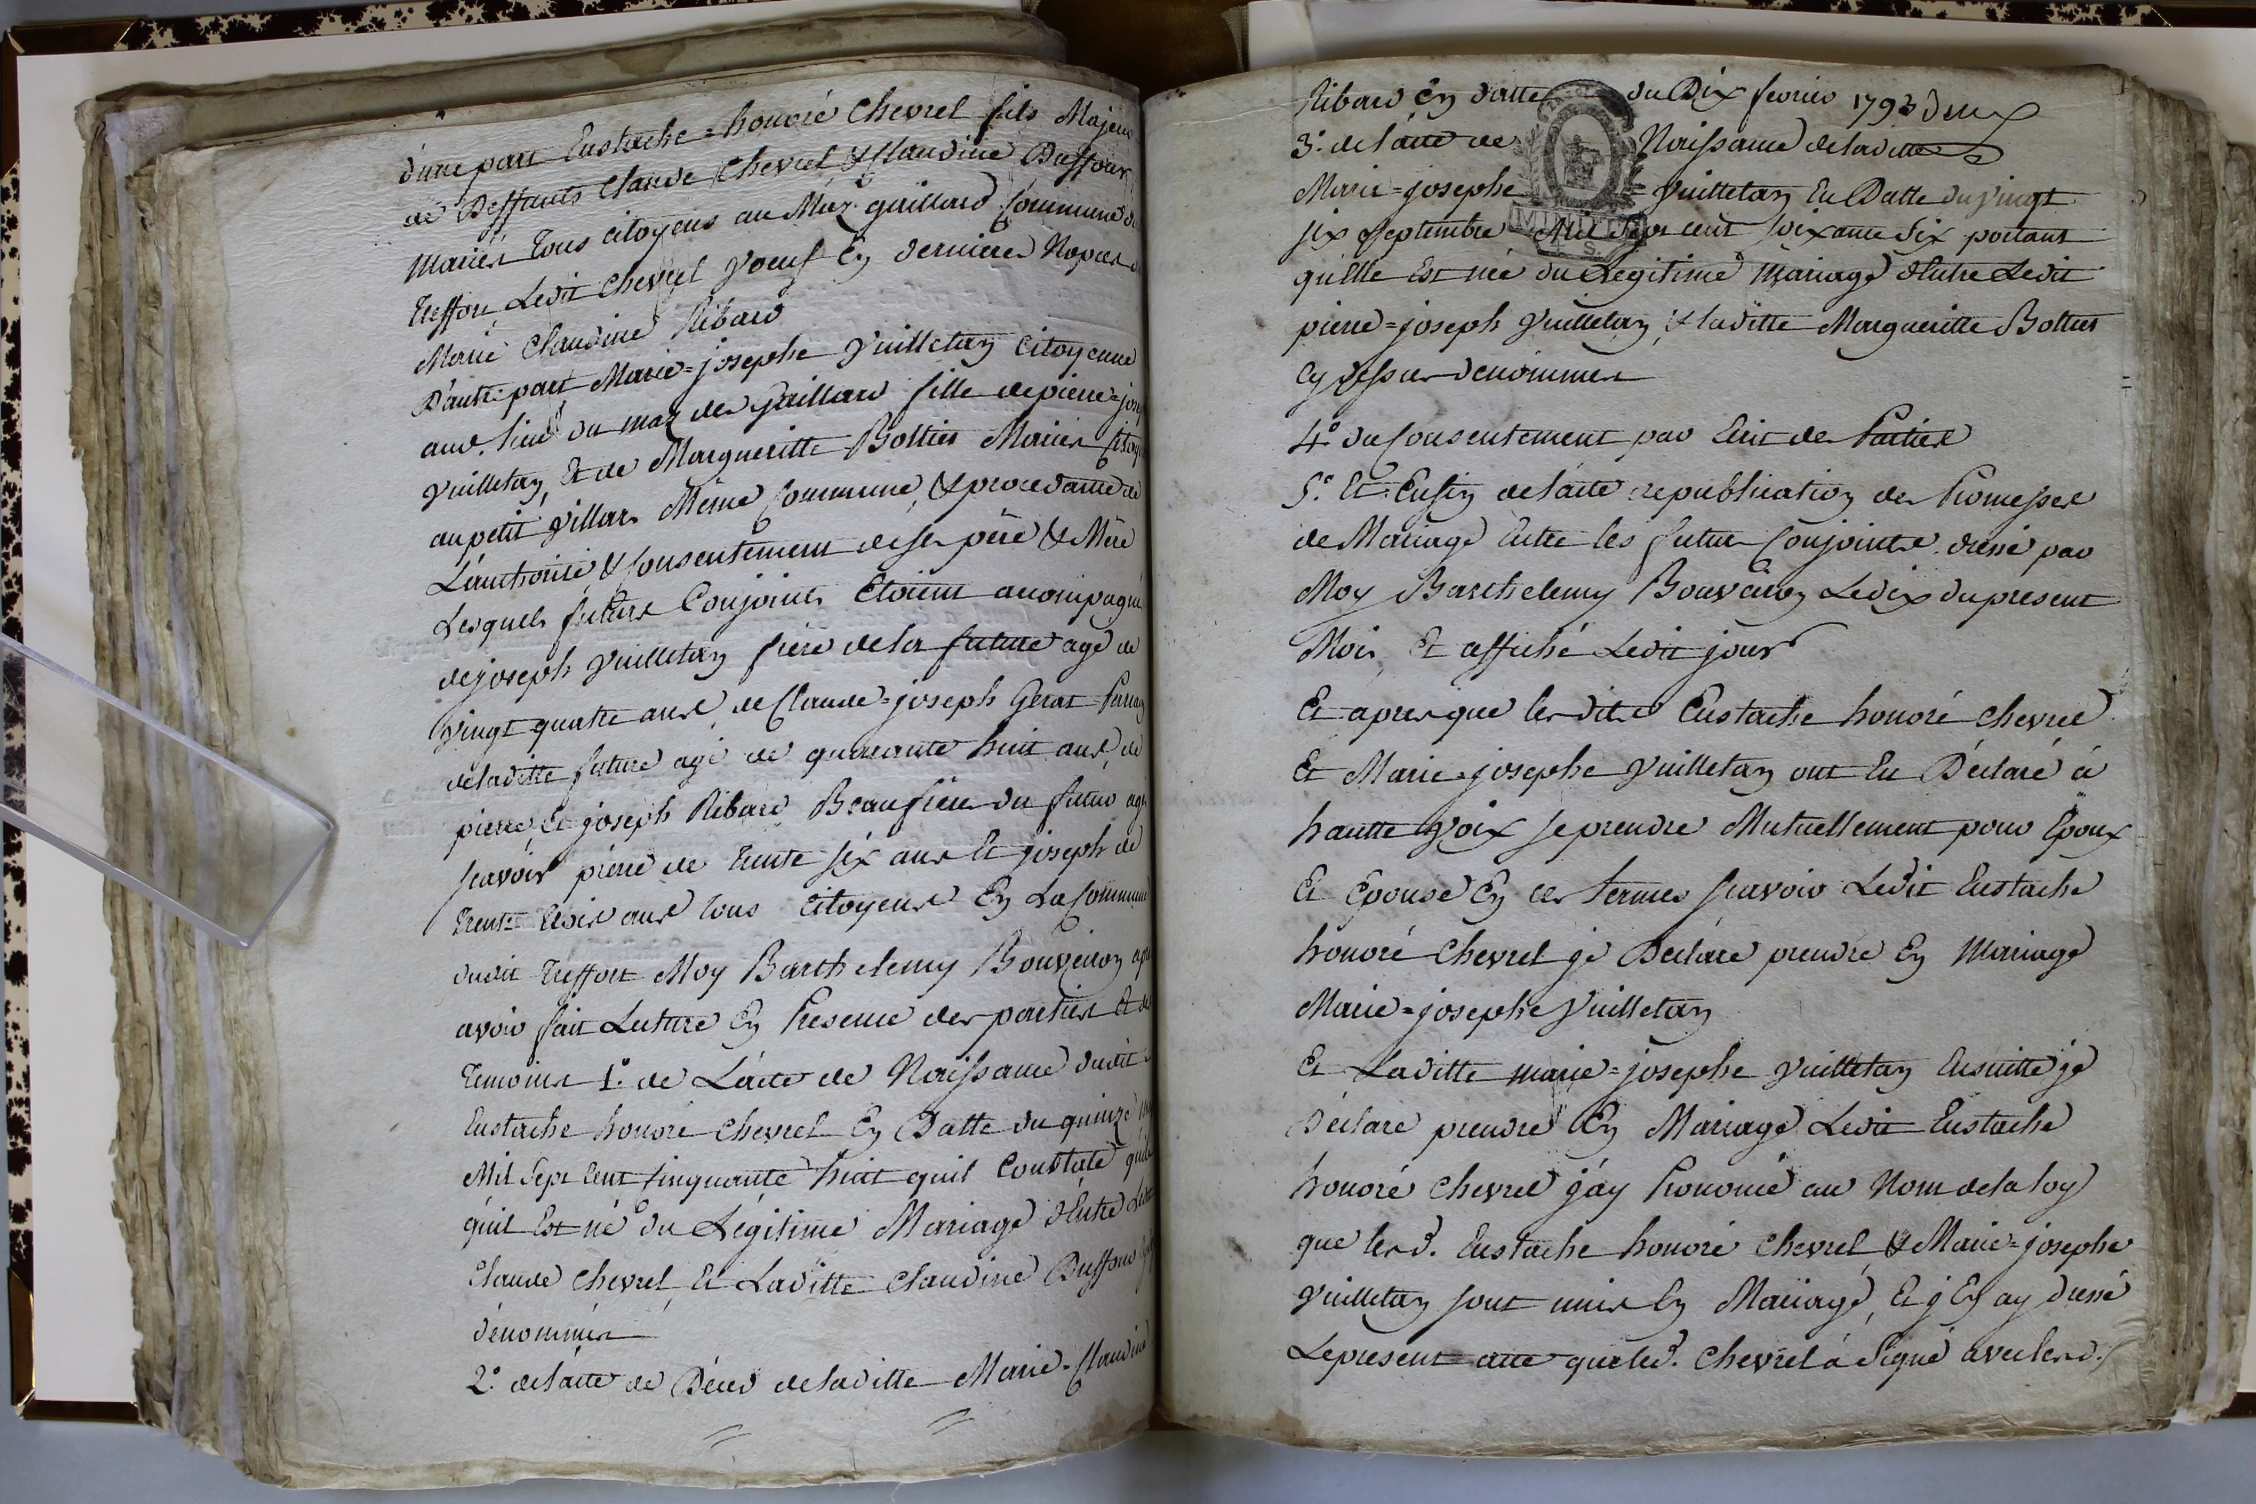 d'une part Eustache=honoré Chevrel fils Majeur
de Deffunts Claude Chevrel & Claudine Duffour
Mariés Tous citoyens au Maz. gaillard Commune de
Treffort Ledit Chevrel Voeuf En derniere Nopces de
Marie Claudine Ribard
D'autre part Marie=josephe Vuilletan Citoyenne
aud. lieu du maz des gaillard fille de pierre=jos
Vuilletan, Et de Margueritte Bottier Mariés Citoy
au petit Villars Même Commune, & procedante de
L'authorité & Consentement de ses père & Mère
Lesquels futurs Conjoints Etoient accompagné
de joseph Vuilletan frère de la future agé de
Vingt quatre ans, de Claude=joseph Gerat Parrain
de laditte future agé de quarante huit ans, de
pierre Et joseph Ribard Beaufrère du futur agé
scavoir pierre de trente six ans Et joseph de
trente trois ans tous Citoyens En La Commune
dudit Treffort Moy Barthelemy Bouveiron apr
avoir fait Lecture En Presence des parties Et de
Temoins 1.º de L'acte de Naissance dudit
Eustache honoré Chevrel En Datte du quinze
Mil Sept Cent Cinquante huit quil Constate
qu'il Est né du Légitime Mariage d'Entre Ledit
Claude Chevrel Et Laditte Claudine Duffour
dénommés
2.º de l'acte de Décés de laditte Marie-Claudine
Ribard En datte du Dix fevrier 1793 deux
3.º de l'acte de Naissance de laditte
Marie=josephe = Vuilletan En Datte du Vingt
six Septembre Mil Sept cent soixante Six portant
qu'Elle Est née du Legitime Mariage d'Entre Ledit
pierre=joseph Vuilletan, & laditte Margueritte Bottier
Cy dessus denommés
4.º du Consentement par Ecrit des Parties
5.º Et Enfin de l'acte republication des Promesses
de Mariage Entre les futurs Conjoints dressé par
Moy Barthelemy Bouveiron Le dix du present
Mois, Et affiché Ledit jour
Et apres que lesdits Eustache honoré chevrel
Et Marie=josephe Vuilletan ont Eu Déclaré à
hautte Voix se prendre Mutuellement pour Epoux
Et Epouse En ces termes scavoir Ledit Eustache
honoré Chevrel je Déclare prendre En Mariage
Marie=josephe Vuilletan
Et Laditte marie=josephe Vuilletan Ensuitte je
Déclare prendre En Mariage Ledit Eustache
honoré Chevrel j'ay Prononcé au Nom de la loy
que lesd. Eustache honoré Chevrel & Marie=josephe
Vuilletan sont unis En Mariage, Et j'En ay dressé
Le present acte que led. Chevrel à Signé avec les d.